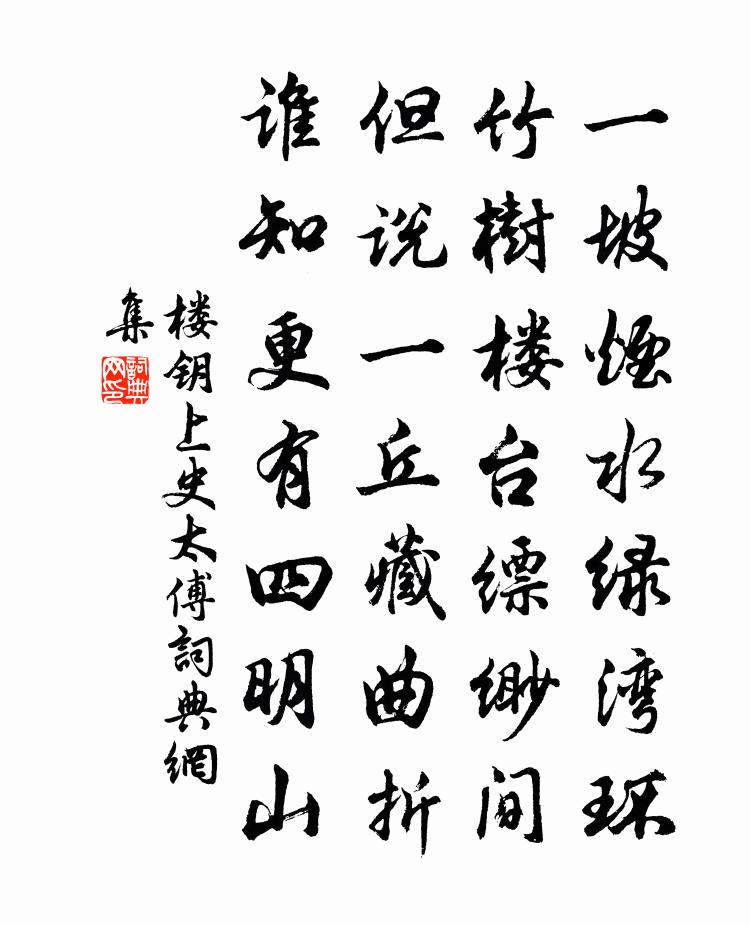 一坡煙水緑湾环
竹樹楼台缥缈间
但说一丘藏曲折
谁知更有四明山
楼钥上史太傅詞典網
集
詞典
网印